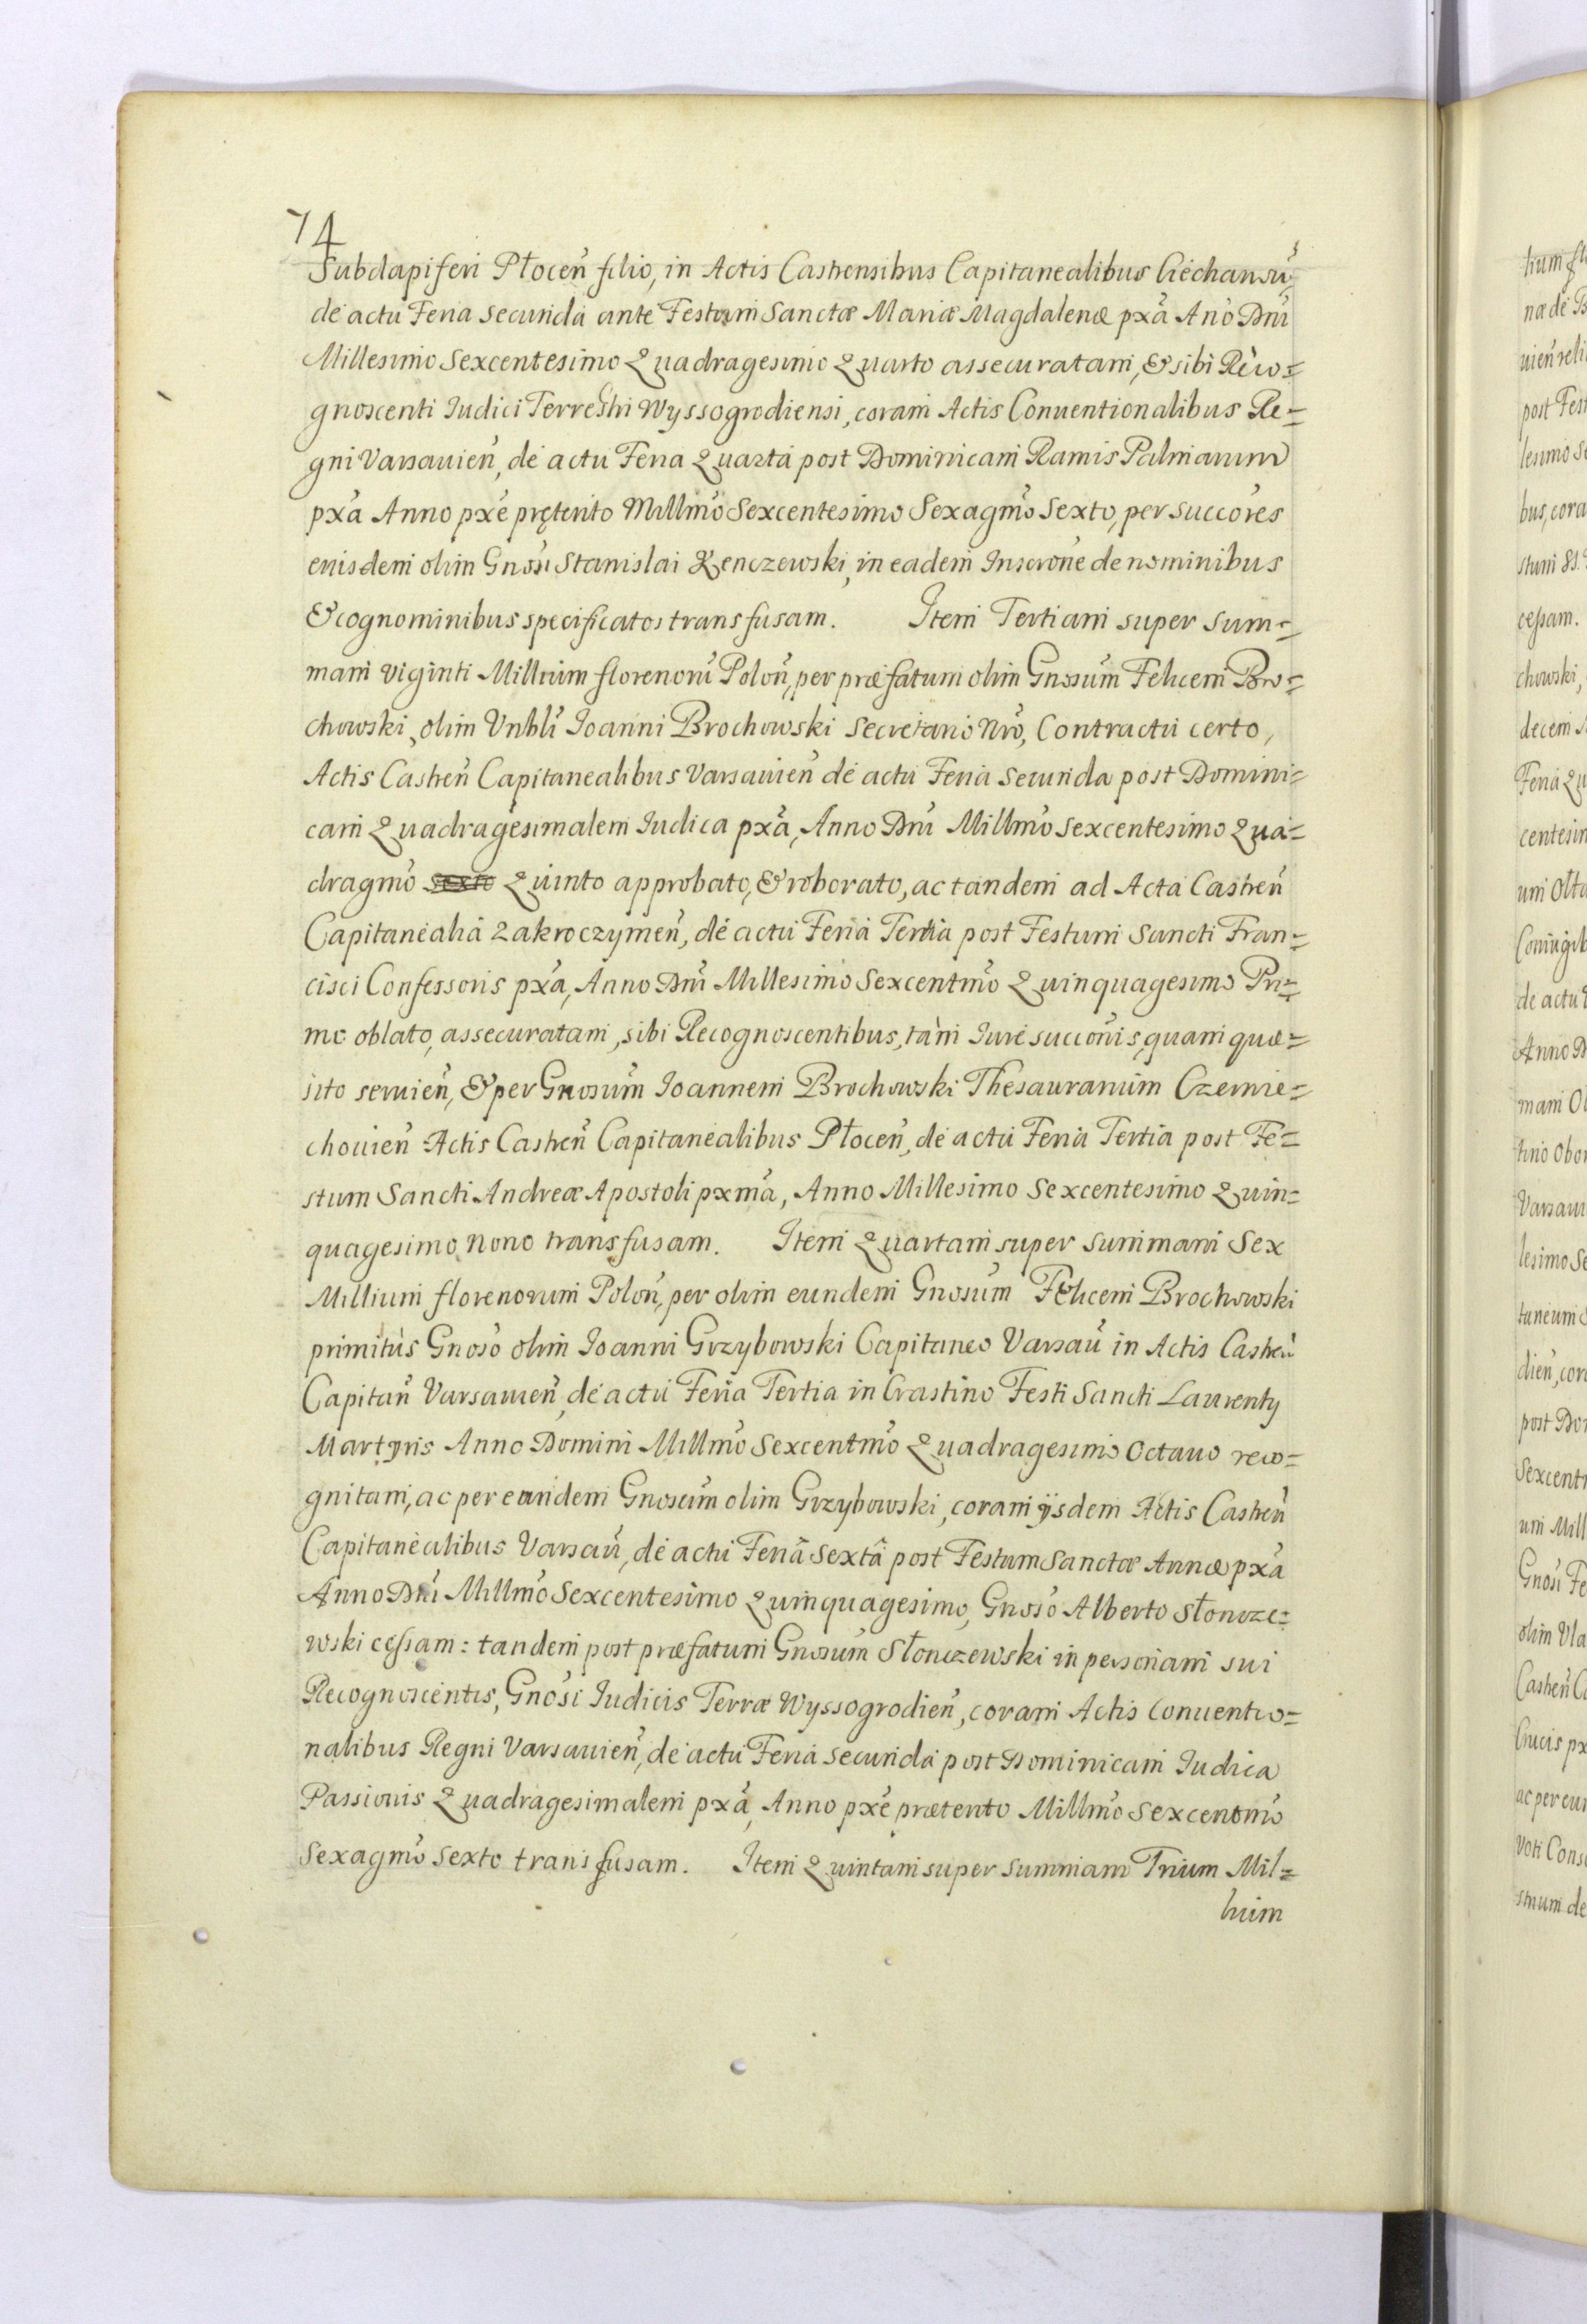 74
Subdapiferi Płocen̄ filio, in Actis Castrensibus Capitanealibus Ciechanou̅,
de actu Feria secunda ante Festum Sanctæ Mariæ Magdalenæ pxa Ano Dni
Millesimo Sexcentesimo Quadragesimo Quarto assecuratam, & sibi Reco=
gnoscenti Iudici Terrestri Wyssogrodiensi, coram Actis Conuentionalibus Re=
gni Varsauien̄, de actu Feria Quarta post Dominicam Ramis Palmarum
pxa Anno pxe pręterito Millmo Sexcentesimo Sexagmo Sexto, per succores
eiusdem olim Gnosi Stanislai Kenczewski, in eadem Inscrone de nominibus
& cognominibus specificatos transfusam. Item Tertiam super Sum=
mam viginti Millium florenoru̅ Polon̄, per præfatum olim Gnosum Felicem Bro=
chowski, olim Vnbli Ioanni Brochowski Secretario Nro, Contractu certo,
Actis Castren̄ Capitanealibus Varsauien̄ de actu Feria Secunda post Domini=
cam Quadragesimalem Iudica pxa, Anno Dni Millmo Sexcentesimo Qua=
dragmo sexto Quinto approbato, & roborato, ac tandem ad Acta Castren̄
Capitanealia Zakroczymen̄, de actu Feria Tertia post Festum Sancti Fran=
cisci Confessoris pxa, Anno Dni Millesimo Sexcentmo Quinquagesimo Pri=
mo oblato, assecuratam, sibi Recognoscentibus, tam Iure succonis, quam quæ=
sito seruien̄, & per Gnosum Ioannem Brochowski Thesaurarium Czernie=
chouien̄ Actis Castren̄ Capitanealibus Płocen̄, de actu Feria Tertia post Fe=
stum Sancti Andreæ Apostoli pxma, Anno Millesimo Sexcentesimo Quin=
quagesimo Nono transfusam. Item Quartam super Summam Sex
Millium florenorum Polon̄, per olim eundem Gnosum Felicem Brochowski
primitùs Gnoso olim Ioanni Grzybowski Capitaneo Varsau̅ in Actis Castren̄
Capitan̄ Varsauien̄, de actu Feria Tertia in Crastino Festi Sancti Laurenty
Martyris Anno Domini Millmo Sexcentmo Quadragesimo Octauo reco=
gnitam, ac per eundem Gnosum olim Grzybowski, coram ijsdem Actis Castren̄
Capitanealibus Varsau̅, de actu Feriâ Sextâ post Festum Sanctæ Annæ pxa
Anno Dni Millmo Sexcentesimo Quinquagesimo, Gnoso Alberto Słoncze=
wski cessam: tandem post præfatum Gnosum Słonczewski in personam sui
Recognoscentis, Gnosi Iudicis Terræ Wyssogrodien̄, coram Actis Conuentio=
nalibus Regni Varsauien̄, de actu Feria Secunda post Dominicam Iudica
Passionis Quadragesimalem pxa, Anno pxe præterito Millmo Sexcentmo
Sexagmo Sexto transfusam. Item Quintam super Summam Trium Mil=
lium